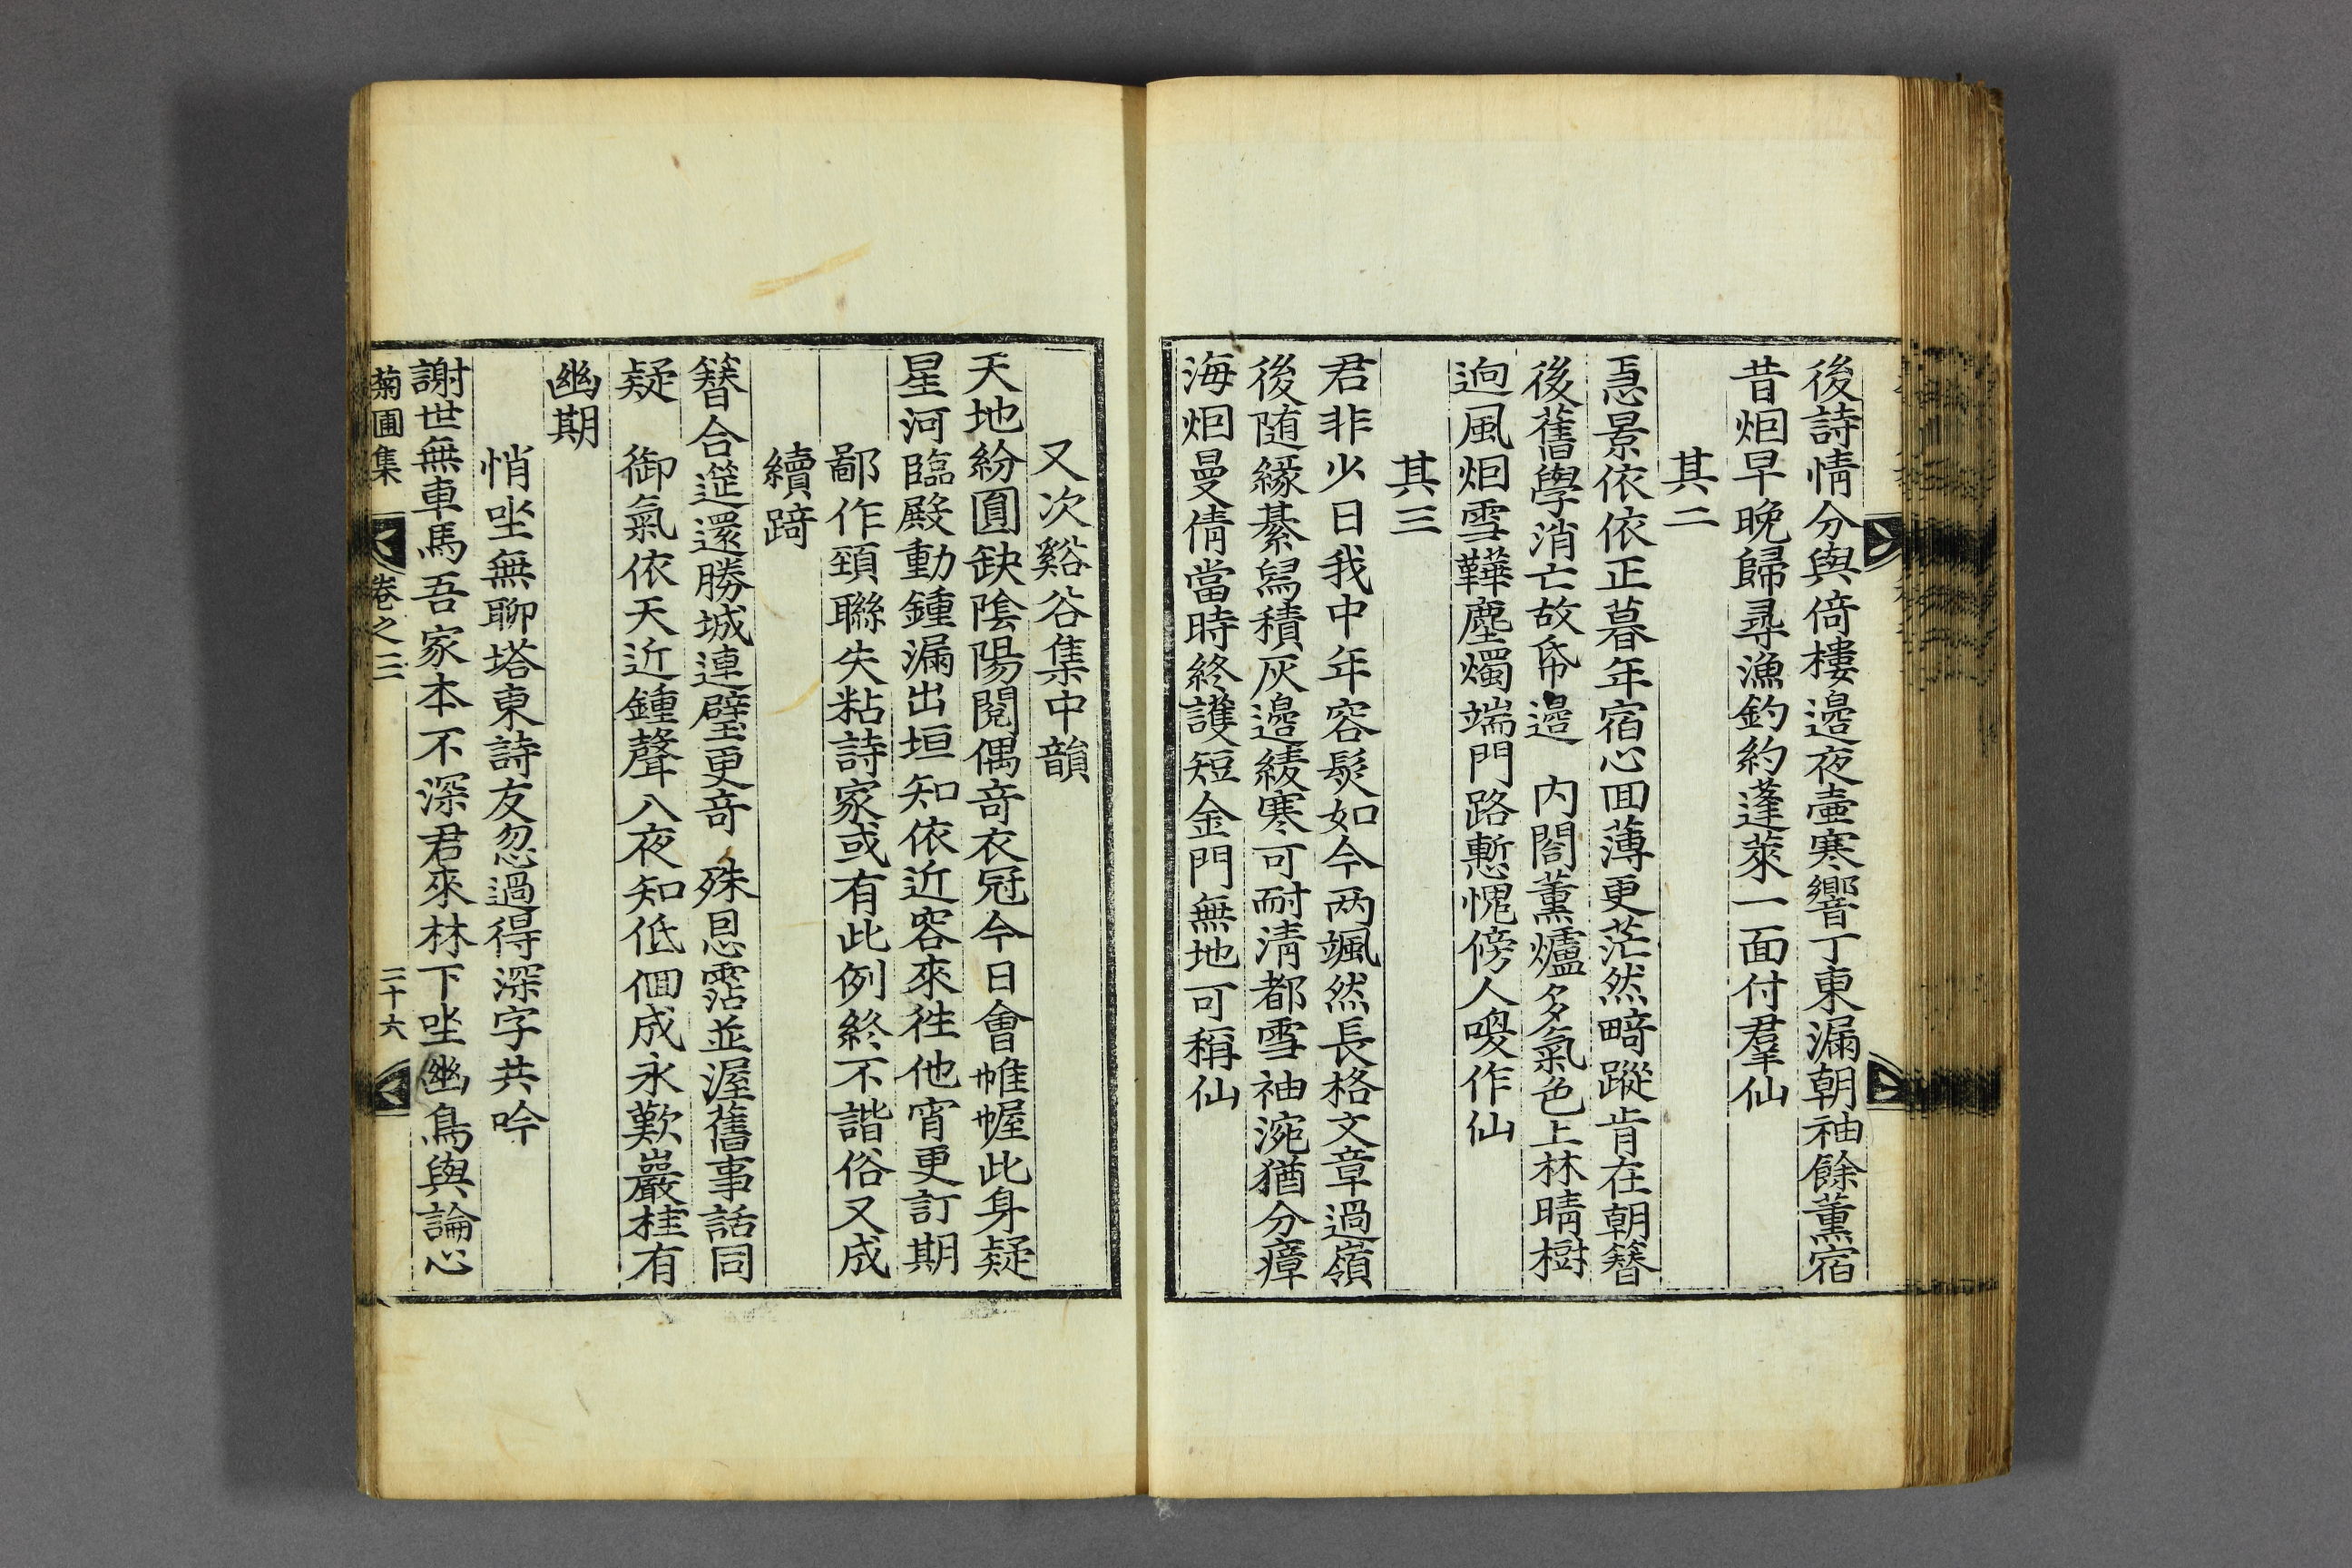 後詩情分與倚樓邉夜壷寒響丁東漏朝袖餘薰宿
昔烟早晩歸尋漁釣約蓬萊一面付羣仙
其二
急景依依正暮年宿心回薄更茫然畸蹤肯在朝簪
後舊學消亡故帋邉 内閤薰爐多氣色上林晴樹
逈風烟雪鞾塵燭端門路慙愧傍人喚作仙
其三
君非少日我中年容髮如今两颯然長格文章過嶺
後随緣綦舃積灰邉綾寒可耐淸都雪袖涴猶分瘴
海烟曼倩當時終護短金門無地可稱仙
又次谿谷集中韻
天地紛圓缺陰陽閱偶竒衣冠今日會帷幄此身疑
星河臨殿動鍾漏出垣知依近容來徃他宵更訂期
鄙作頚聯失粘詩家或有此例終不諧俗又成
續踦
簪合筵還勝城連璧更竒 殊恩霑並渥舊事話同
疑 御氣依天近鍾聲八夜知低佪成永歎巖桂有
幽期
悄坐無聊塔東詩友忽過得深字共吟
謝世無車馬吾家本不深君來林下坐幽鳥與論心
菊圃集 卷之三 二十六